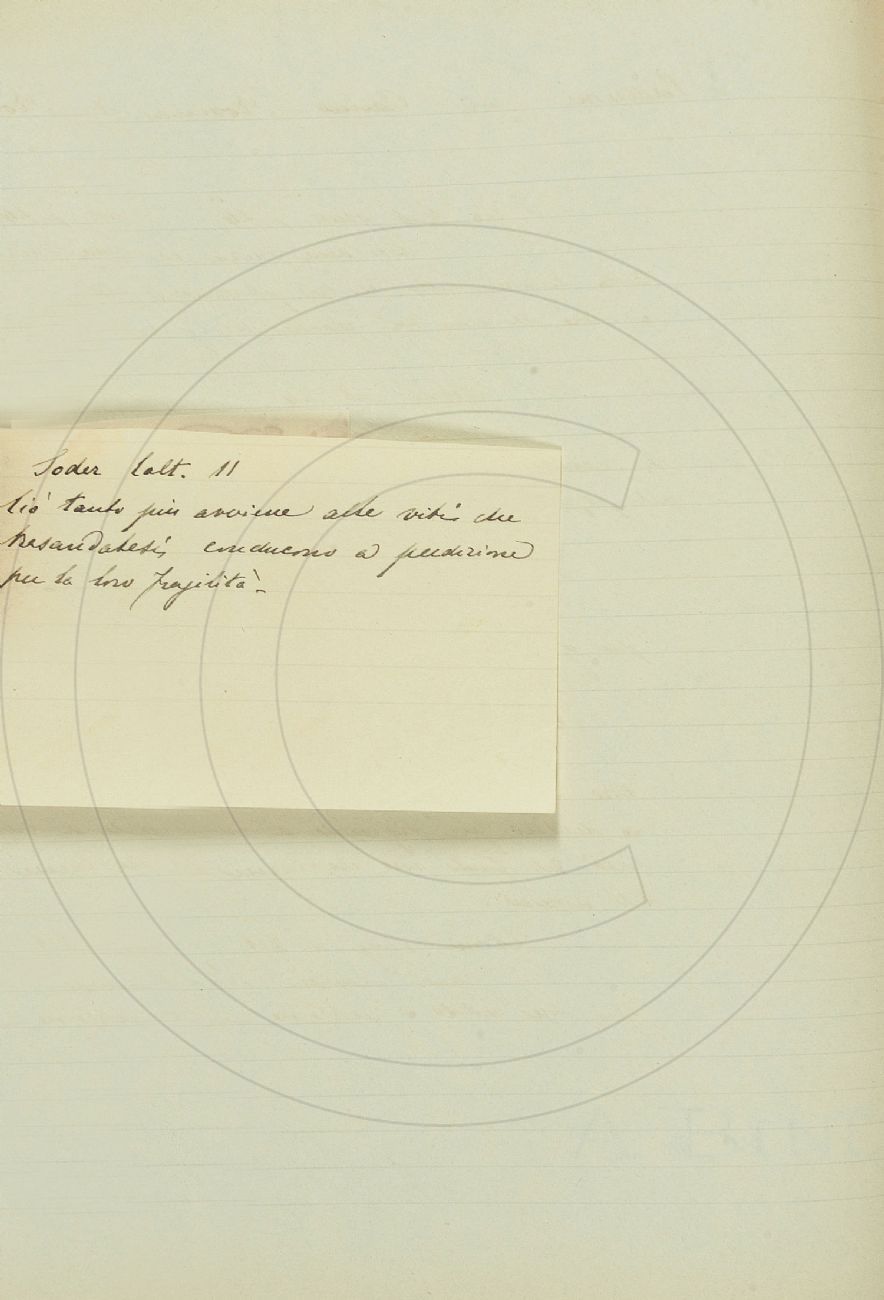 Soder Colt. 11
Ciò tanto più avviene alle viti che
trasandatesi conducono a perdizione
per la loro fragilità.